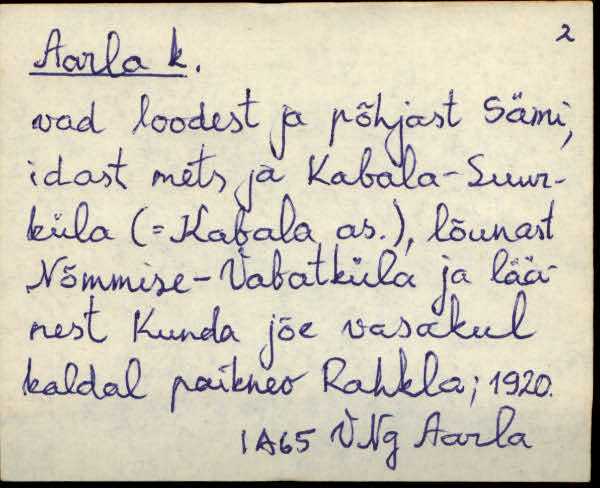 2
Aarla k.
vad loodest ja põhjast Sämi,
idast mets ja Kabala-Suur-
küla (=Kabala as.), lõunast
Nõmmise-Vabatküla ja lää-
nest Kunda jõe vasakul
kaldal paiknev Rahkla; 1920.
IA65 VNg Aarla